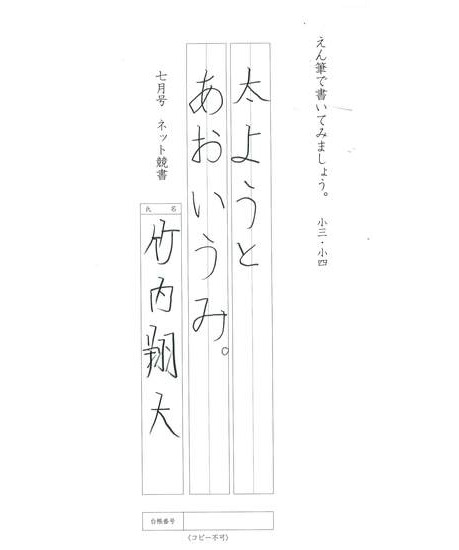 えん筆で書いてみましょう。 小三・小四
太ようと
あおいうみ。
七月号 ネット競書
氏名
竹内翔大
台帳番号
（コピー不可）